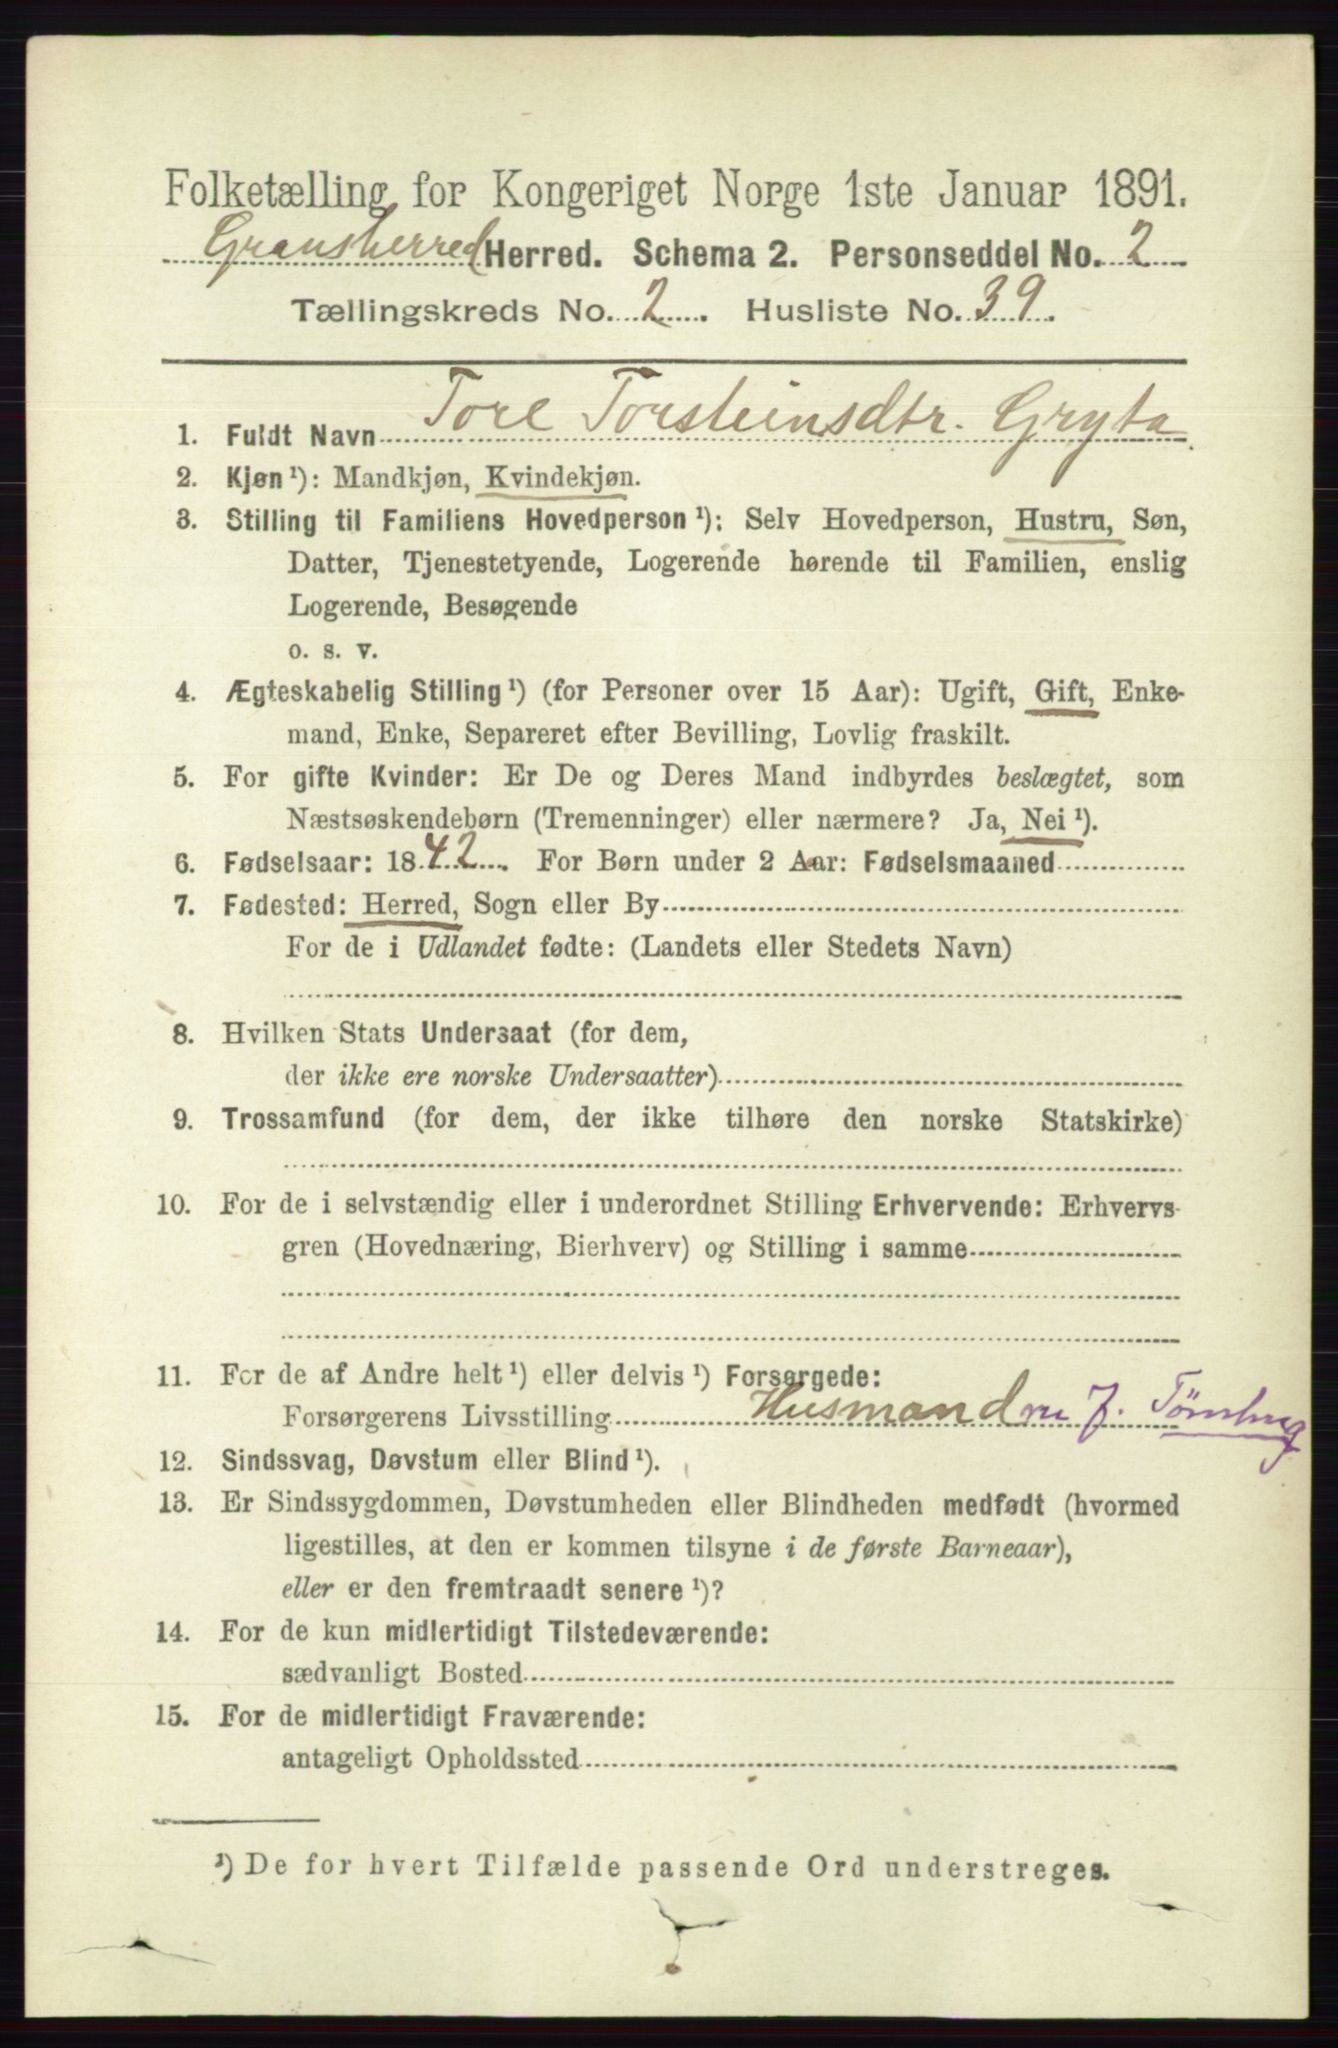 Folketælling for Kongeriget Norge 1ste Januar 1891.
Gransherred Herred. Schema 2. Personseddel No. 2
Tællingskreds No. 2. Husliste No. 39.
1. Fuldt Navn Tore Torsteinsdtr. Gryta
2. Kjøn¹): Mandkjøn, Kvindekjøn.
3. Stilling til Familiens Hovedperson¹): Selv Hovedperson, Hustru, Søn,
Datter, Tjenestetyende, Logerende hørende til Familien, enslig
Logerende, Besøgende
o. s. v.
4. Ægteskabelig Stilling¹) (for Personer over 15 Aar): Ugift, Gift, Enke-
mand, Enke, Separeret efter Bevilling, Lovlig fraskilt.
5. For gifte Kvinder: Er De og Deres Mand indbyrdes beslægtet, som
Næstsøskendebørn (Tremenninger) eller nærmere? Ja, Nei¹).
6. Fødselsaar: 1842. For Børn under 2 Aar: Fødselsmaaned
7. Fødested: Herred, Sogn eller By
For de i Udlandet fødte: (Landets eller Stedets Navn)
8. Hvilken Stats Undersaat (for dem,
der ikke ere norske Undersaatter)
9. Trossamfund (for dem, der ikke tilhøre den norske Statskirke)
10. For de i selvstændig eller i underordnet Stilling Erhvervende: Erhvervs-
gren (Hovednæring, Bierhverv) og Stilling i samme
11. For de af Andre helt¹) eller delvis¹) Forsørgede:
Forsørgerens Livsstilling Husmand J.
12. Sindssvag, Døvstum eller Blind¹).
13. Er Sindssygdommen, Døvstumheden eller Blindheden medfødt (hvormed
ligestilles, at den er kommen tilsyne i de første Barneaar),
eller er den fremtraadt senere¹)?
14. For de kun midlertidigt Tilstedeværende:
sædvanligt Bosted
15. For de midlertidigt Fraværende:
antageligt Opholdssted
¹) De for hvert Tilfælde passende Ord understreges.